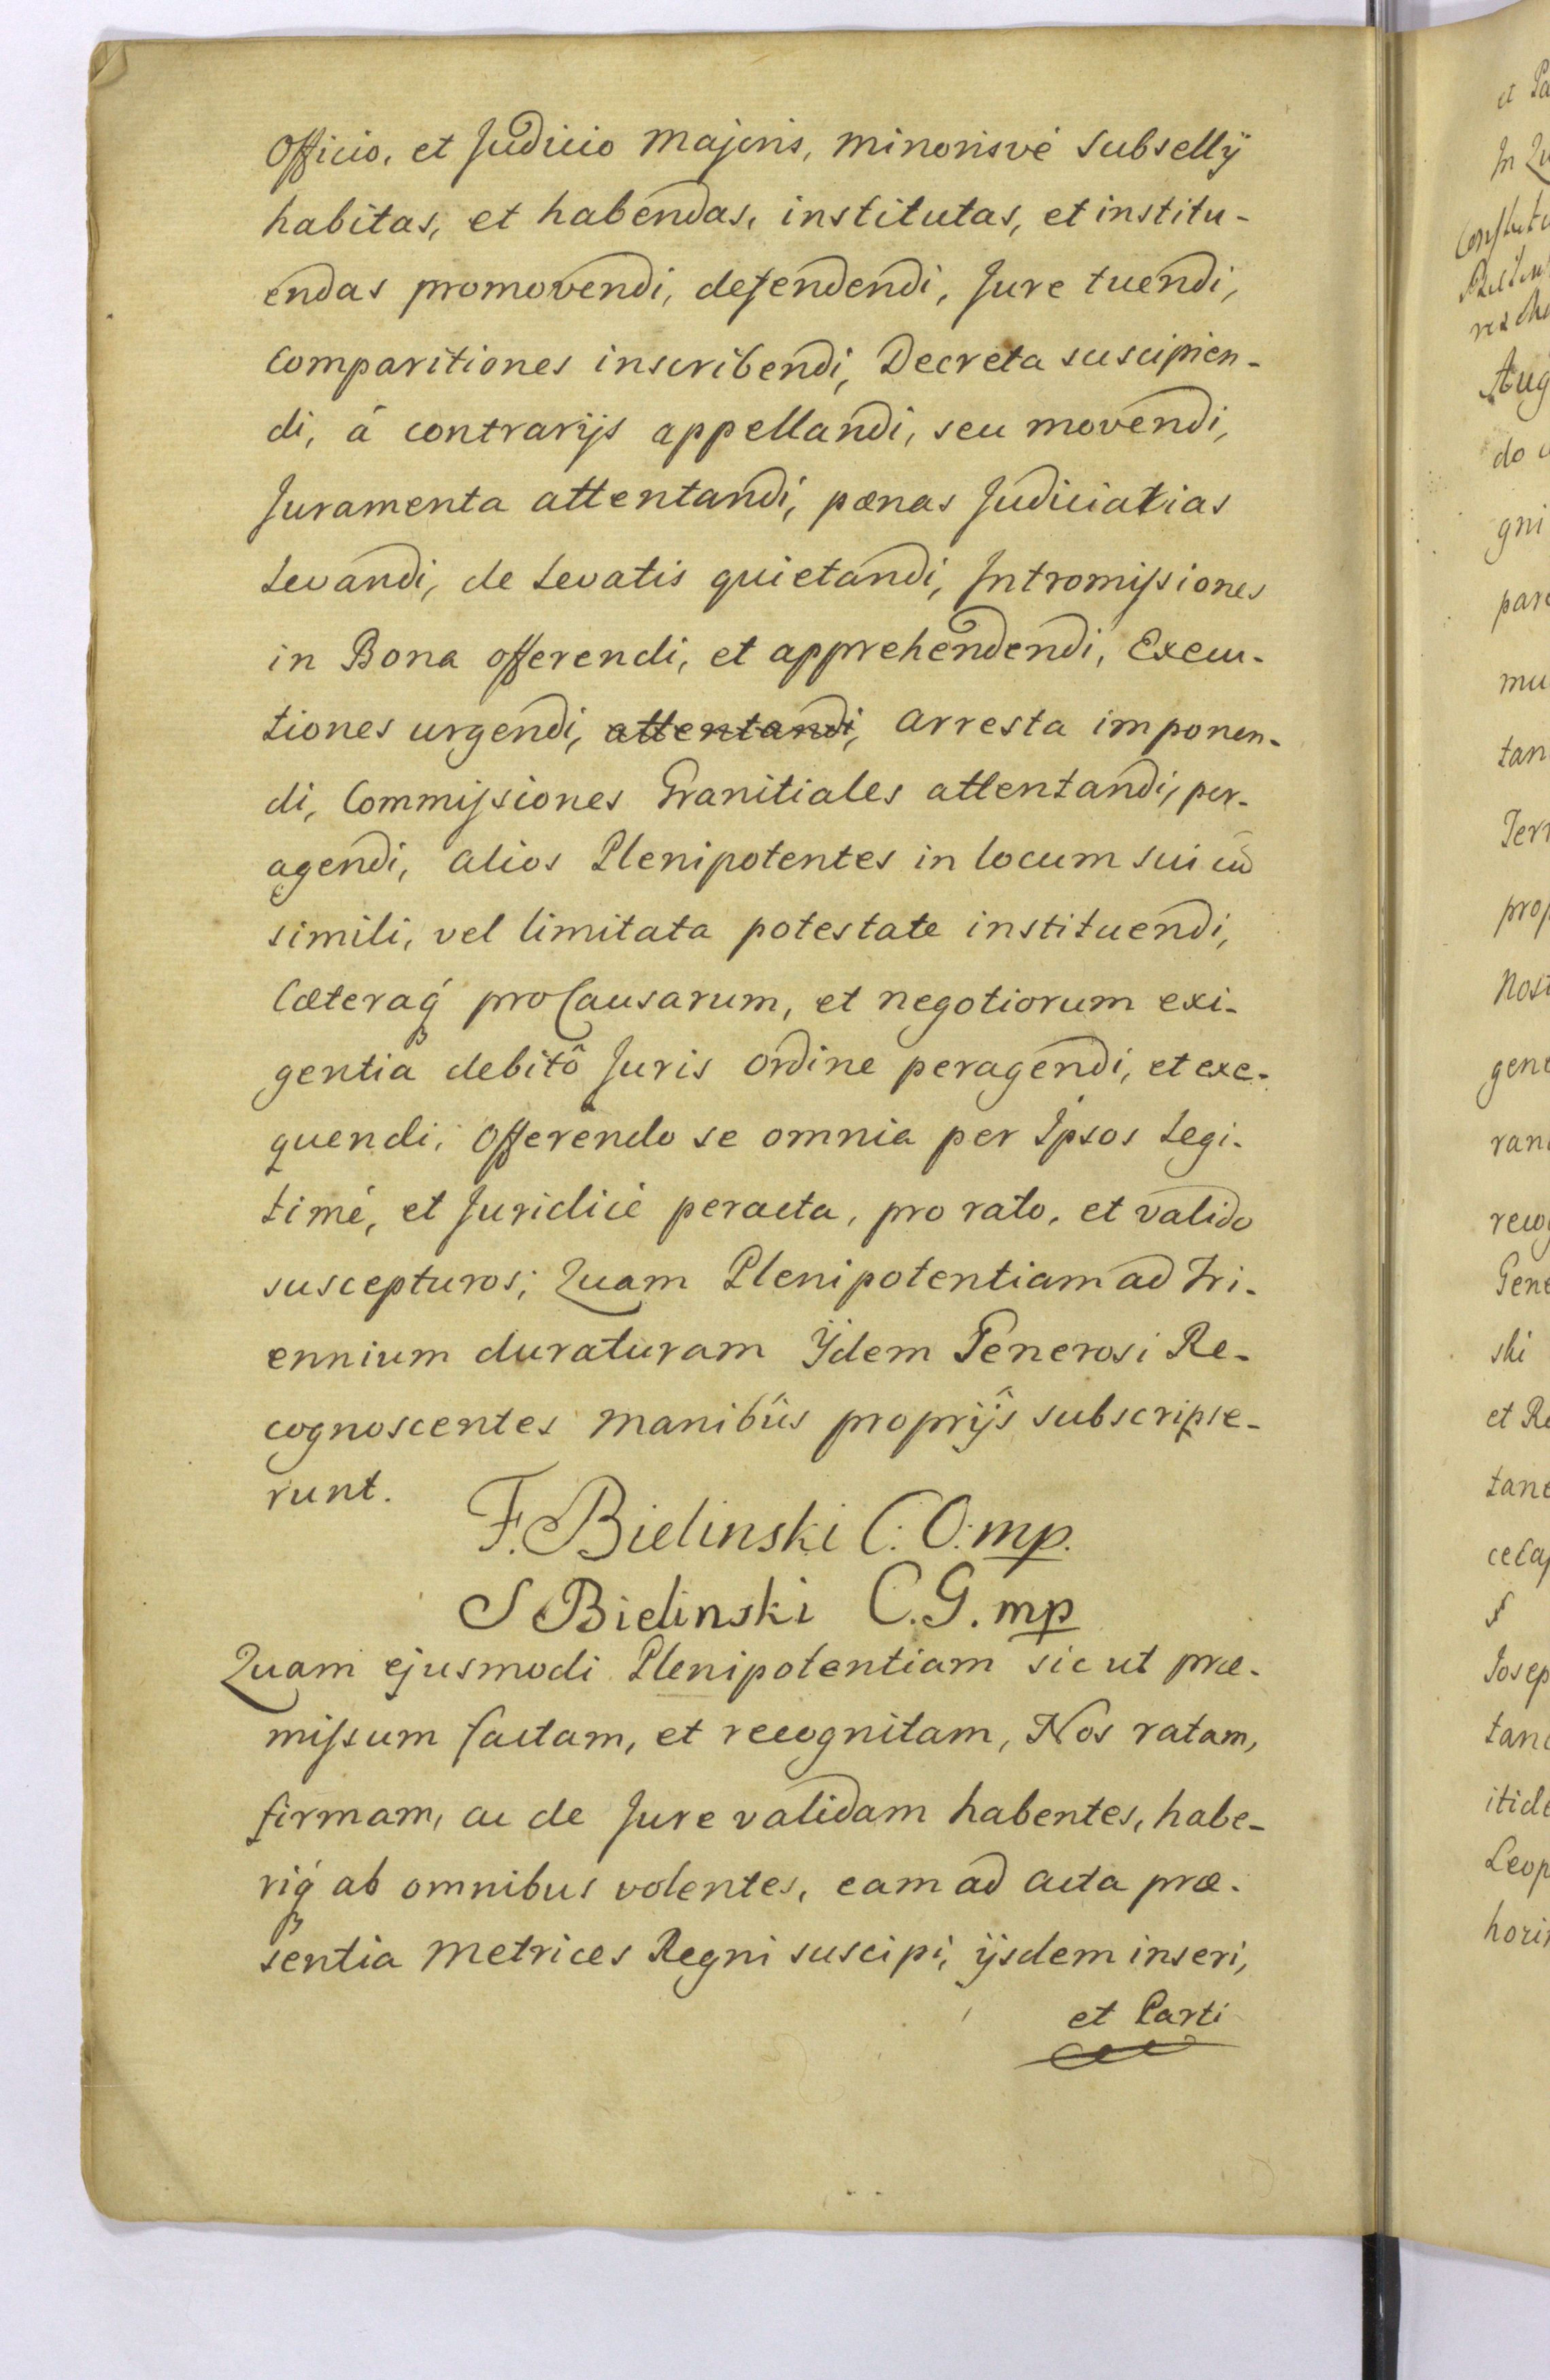 Officio, et Judicio Majoris, Minorisvé Subsellÿ
habitas, et habendas, institutas, et institu-
endas promovendi, defendendi, Jure tuendi,
Comparitiones inscribendi, Decreta suscipien-
di, á contrarÿs appellandi, seu movendi,
Juramenta attentandi, pænas Judiciarias
Levandi, de Levatis quietandi, Intromissiones
in Bona offerendi, et apprehendendi, Execu-
tiones urgendi, attentandi, arresta imponen-
di, Commissiones Granitiales attentandi, per-
agendi, alios Plenipotentes in locum sui cū
simili, vel limitata potestate instituendi,
Cæteraq́ pro Causarum, et negotiorum exi-
gentia debitô Juris ordine peragendi, et exe-
quendi; Offerendo se omnia per Ipsos Legi-
timé, et Juridicé peracta, pro rato, et valido
suscepturos; Quam Plenipotentiam ad Tri-
ennium duraturam Ÿdem Generosi Re-
cognoscentes Manibûs proprÿs subscripse-
runt.
F. Bielinski C: O: mp.
S Bielinski C. G. mp
Quam ejusmodi Plenipotentiam sic ut præ-
missum factam, et recognitam, Nos ratam,
firmam, ac de Jure validam habentes, habe-
riq́ ab omnibus volentes, eam ad Acta præ-
sentia Metrices Regni suscipi, ÿsdem inseri,
et Parti